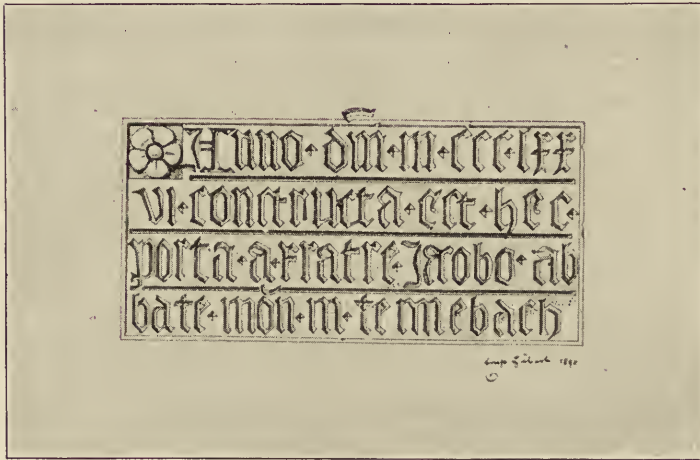 Anno · dm · m · ccc · lxx
vi · constructa · est · hec ·
porta · a · fratre · Jacobo · ab
bate · mon · in · tennebach
1890